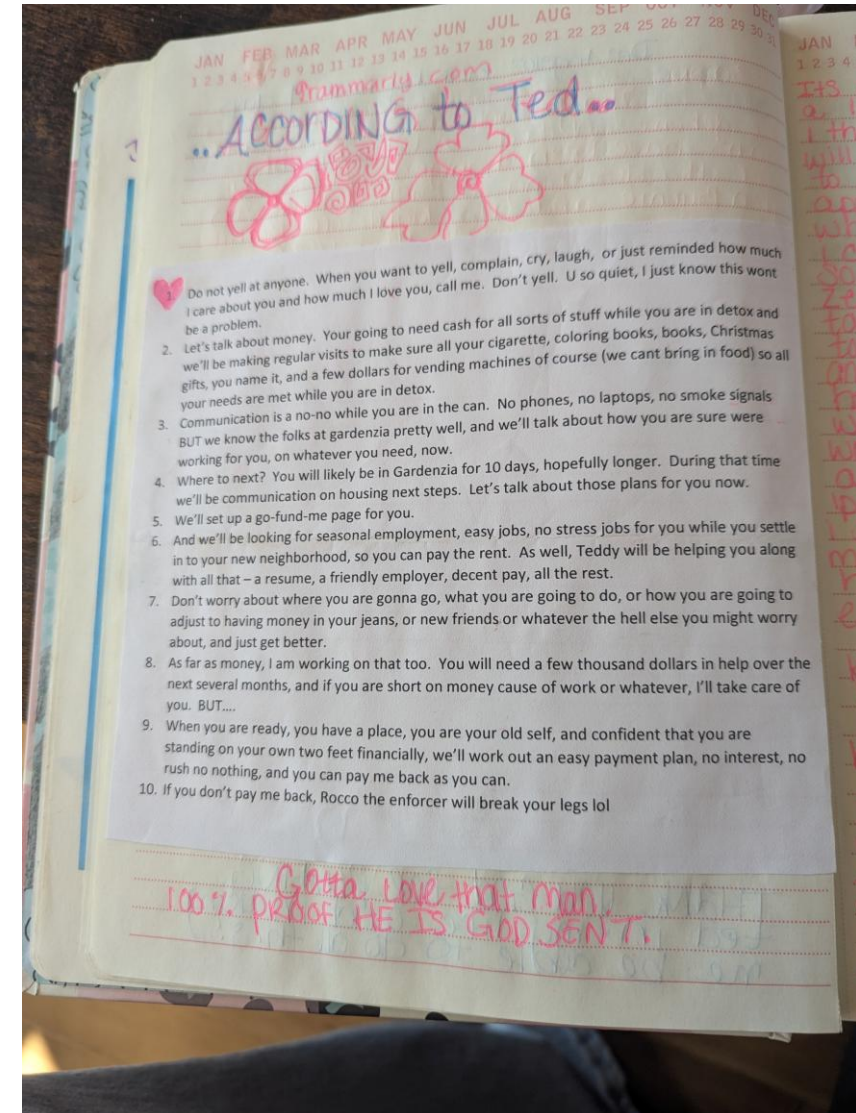 JAN FEB MAR APR MAY JUN JUL AUG SEP OCT NOV DEC
1 2 3 4 5 6 7 8 9 10 11 12 13 14 15 16 17 18 19 20 21 22 23 24 25 26 27 28 29 30 31
grammarly.com
..ACCORDING to Ted...
1. Do not yell at anyone. When you want to yell, complain, cry, laugh, or just reminded how much
I care about you and how much I love you, call me. Don't yell. U so quiet, I just know this wont
be a problem.
2. Let's talk about money. Your going to need cash for all sorts of stuff while you are in detox and
we'll be making regular visits to make sure all your cigarette, coloring books, books, Christmas
gifts, you name it, and a few dollars for vending machines of course (we cant bring in food) so all
your needs are met while you are in detox.
3. Communication is a no-no while you are in the can. No phones, no laptops, no smoke signals
BUT we know the folks at gardenzia pretty well, and we'll talk about how you are sure were
working for you, on whatever you need, now.
4. Where to next? You will likely be in Gardenzia for 10 days, hopefully longer. During that time
we'll be communication on housing next steps. Let's talk about those plans for you now.
5. We'll set up a go-fund-me page for you.
6. And we'll be looking for seasonal employment, easy jobs, no stress jobs for you while you settle
in to your new neighborhood, so you can pay the rent. As well, Teddy will be helping you along
with all that – a resume, a friendly employer, decent pay, all the rest.
7. Don't worry about where you are gonna go, what you are going to do, or how you are going to
adjust to having money in your jeans, or new friends or whatever the hell else you might worry
about, and just get better.
8. As far as money, I am working on that too. You will need a few thousand dollars in help over the
next several months, and if you are short on money cause of work or whatever, I'll take care of
you. BUT....
9. When you are ready, you have a place, you are your old self, and confident that you are
standing on your own two feet financially, we'll work out an easy payment plan, no interest, no
rush no nothing, and you can pay me back as you can.
10. If you don't pay me back, Rocco the enforcer will break your legs lol
Gotta Love that man.
100% PROOF HE IS GOD SENT.
JAN
1 2 3 4
Its
a
i th
will
to